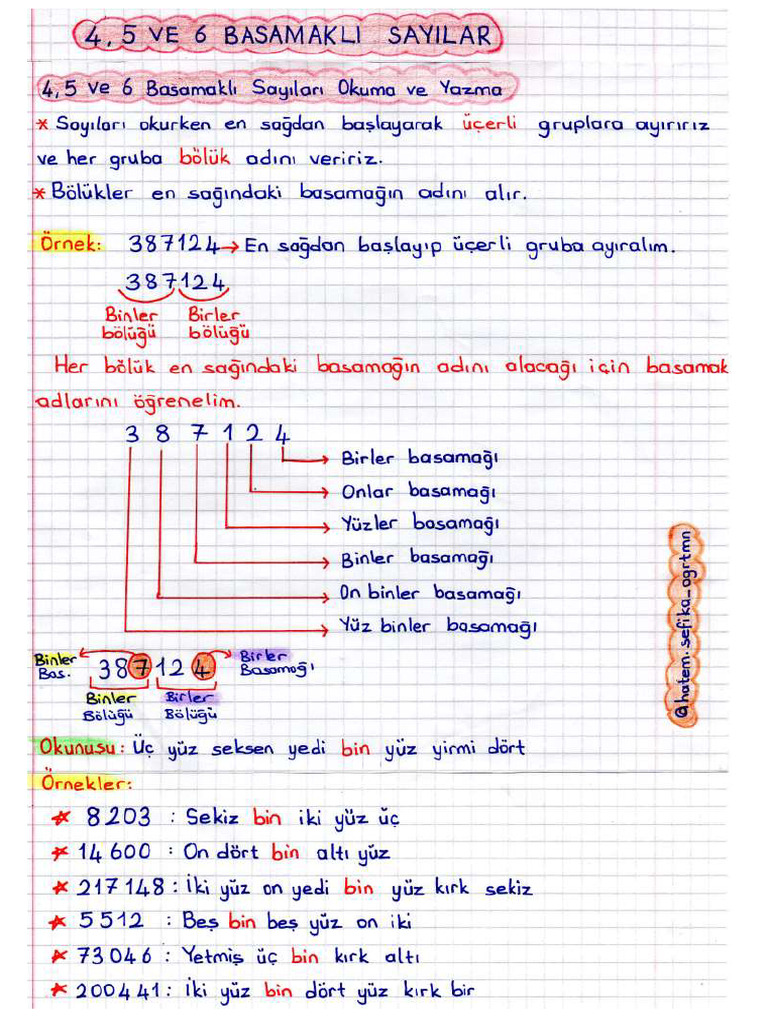 4, 5 VE 6 BASAMAKLI SAYILAR
4,5 ve 6 Basamaklı Sayıları Okuma ve Yazma
* Sayıları okurken en sağdan başlayarak üçerli gruplara ayırırız
ve her gruba bölük adını veririz.
* Bölükler en sağındaki basamağın adını alır.
Örnek: 387124 → En sağdan başlayıp üçerli gruba ayıralım.
387124
Binler Birler
bölüğü bölüğü
Her bölük en sağındaki basamağın adını alacağı için basamak
adlarını öğrenelim.
3 8 7 1 2 4
Birler basamağı
Onlar basamağı
Yüzler basamağı
Binler basamağı
On binler basamağı
Yüz binler basamağı
@hatem.sefika_ogrtmn
Binler Bas. 387124 Birler Basamağı
Binler Birler
Bölüğü Bölüğü
Okunuşu: Üç yüz seksen yedi bin yüz yirmi dört
Örnekler:
* 8203 : Sekiz bin iki yüz üç
* 14600 : On dört bin altı yüz
* 217148 : İki yüz on yedi bin yüz kırk sekiz
* 5512 : Beş bin beş yüz on iki
* 73046 : Yetmiş üç bin kırk altı
* 200441 : İki yüz bin dört yüz kırk bir